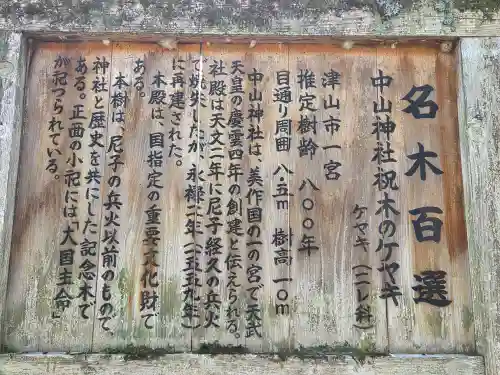 名木百選
中山神社祝木のケヤキ
ケヤキ(ニレ科)
津山市一宮
推定樹齢 八〇〇年
目通り周囲 八・五m 樹高 一〇m
中山神社は、美作国の一の宮で天武
天皇の慶雲四年の創建と伝えられる。
社殿は天文二年に尼子経久の兵火
で焼失したが、永禄二年(一五五九年)
に再建された。
本殿は、国指定の重要文化財で
ある。
本樹は、尼子の兵火以前のもので、
神社と歴史を共にした記念木で
ある。正面の小祀には「大国主命」
が祀つられている。